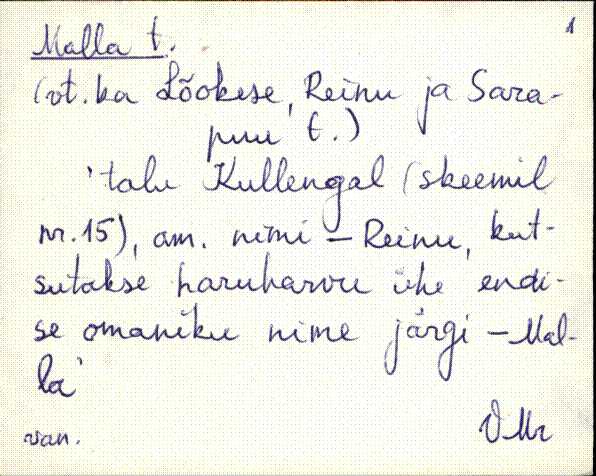 1
Malla t.
(vt. ka Lõokese, Reinu ja Sara-
puu t.)
'talu Kullengal (skeemil
nr. 15), am. nimi – Reinu, kut-
sutakse haruharva ühe endi-
se omaniku nime järgi – Mal-
la'
VMr
van.